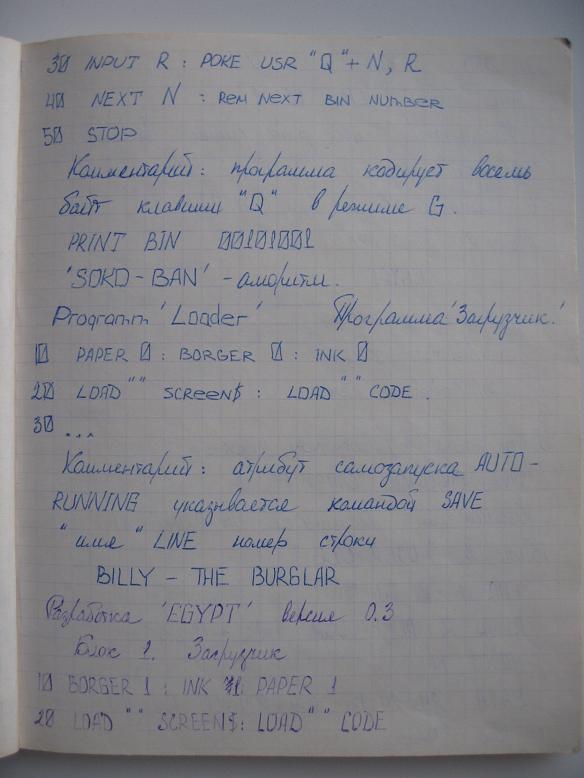 30 INPUT R : POKE USR "Q" + N, R
40 NEXT N : REM NEXT BIN NUMBER
50 STOP
Комментарий: программа кодирует восемь
байт клавиши "Q" в режиме G.
PRINT BIN 00101001
'SOKO-BAN' - алоритм.
Programm 'Loader' Программа 'Загрузчик.'
10 PAPER 0 : BORGER 0 : INK 0
20 LOAD "" SCREEN$ : LOAD "" CODE .
30 ...
Комментарий: атрибут самозапуска AUTO-
RUNNING указывается командой SAVE
"имя" LINE номер строки
BILLY - THE BURGLAR
Разработка 'EGYPT' версия 0.3
Блок 1. Загрузчик
10 BORGER 1 : INK 1: PAPER 1
20 LOAD "" SCREEN$: LOAD "" CODE